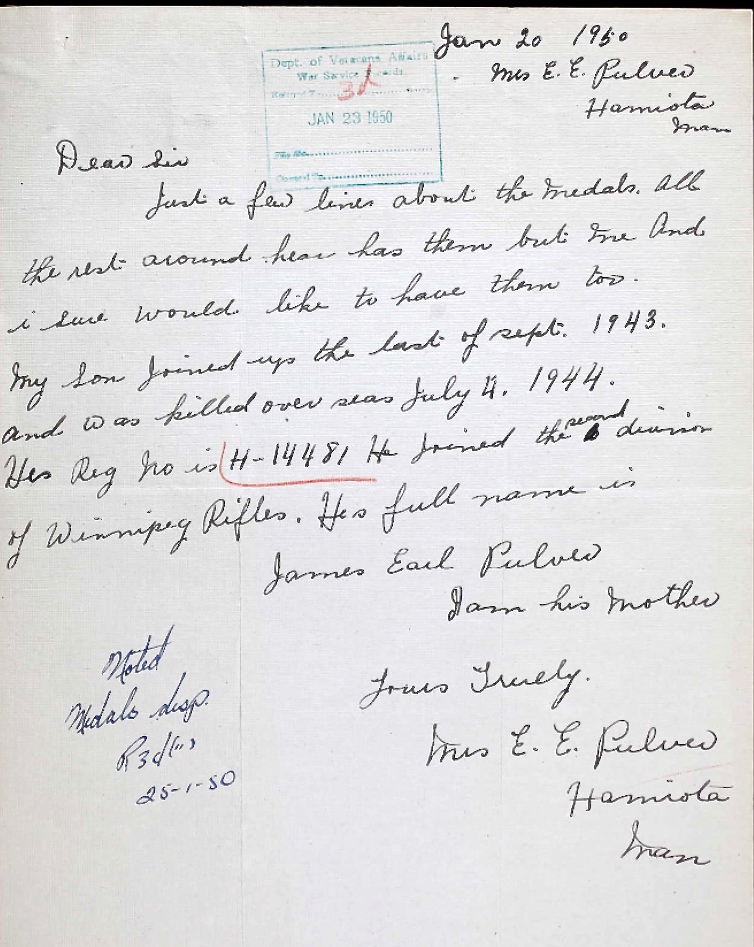 Jan 20 1950
Mrs E. E. Pulver
Hamiota
Man
Dept. of Veterans Affairs
War Service Records
3d
JAN 23 1950
File No.
Dear Sir
Just a few lines about the Medals. All
the rest around hear has them but Me And
i sure would like to have them too.
My Son Joined up the last of sept. 1943.
and was killed over seas July 4. 1944.
His Reg No is H-14481 He Joined the second division
of Winnipeg Rifles. His full name is
James Earl Pulver
I am his Mother
Yours Truely.
Mrs E. E. Pulver
Hamiota
Man
Noted
Medals desp.
25-1-50